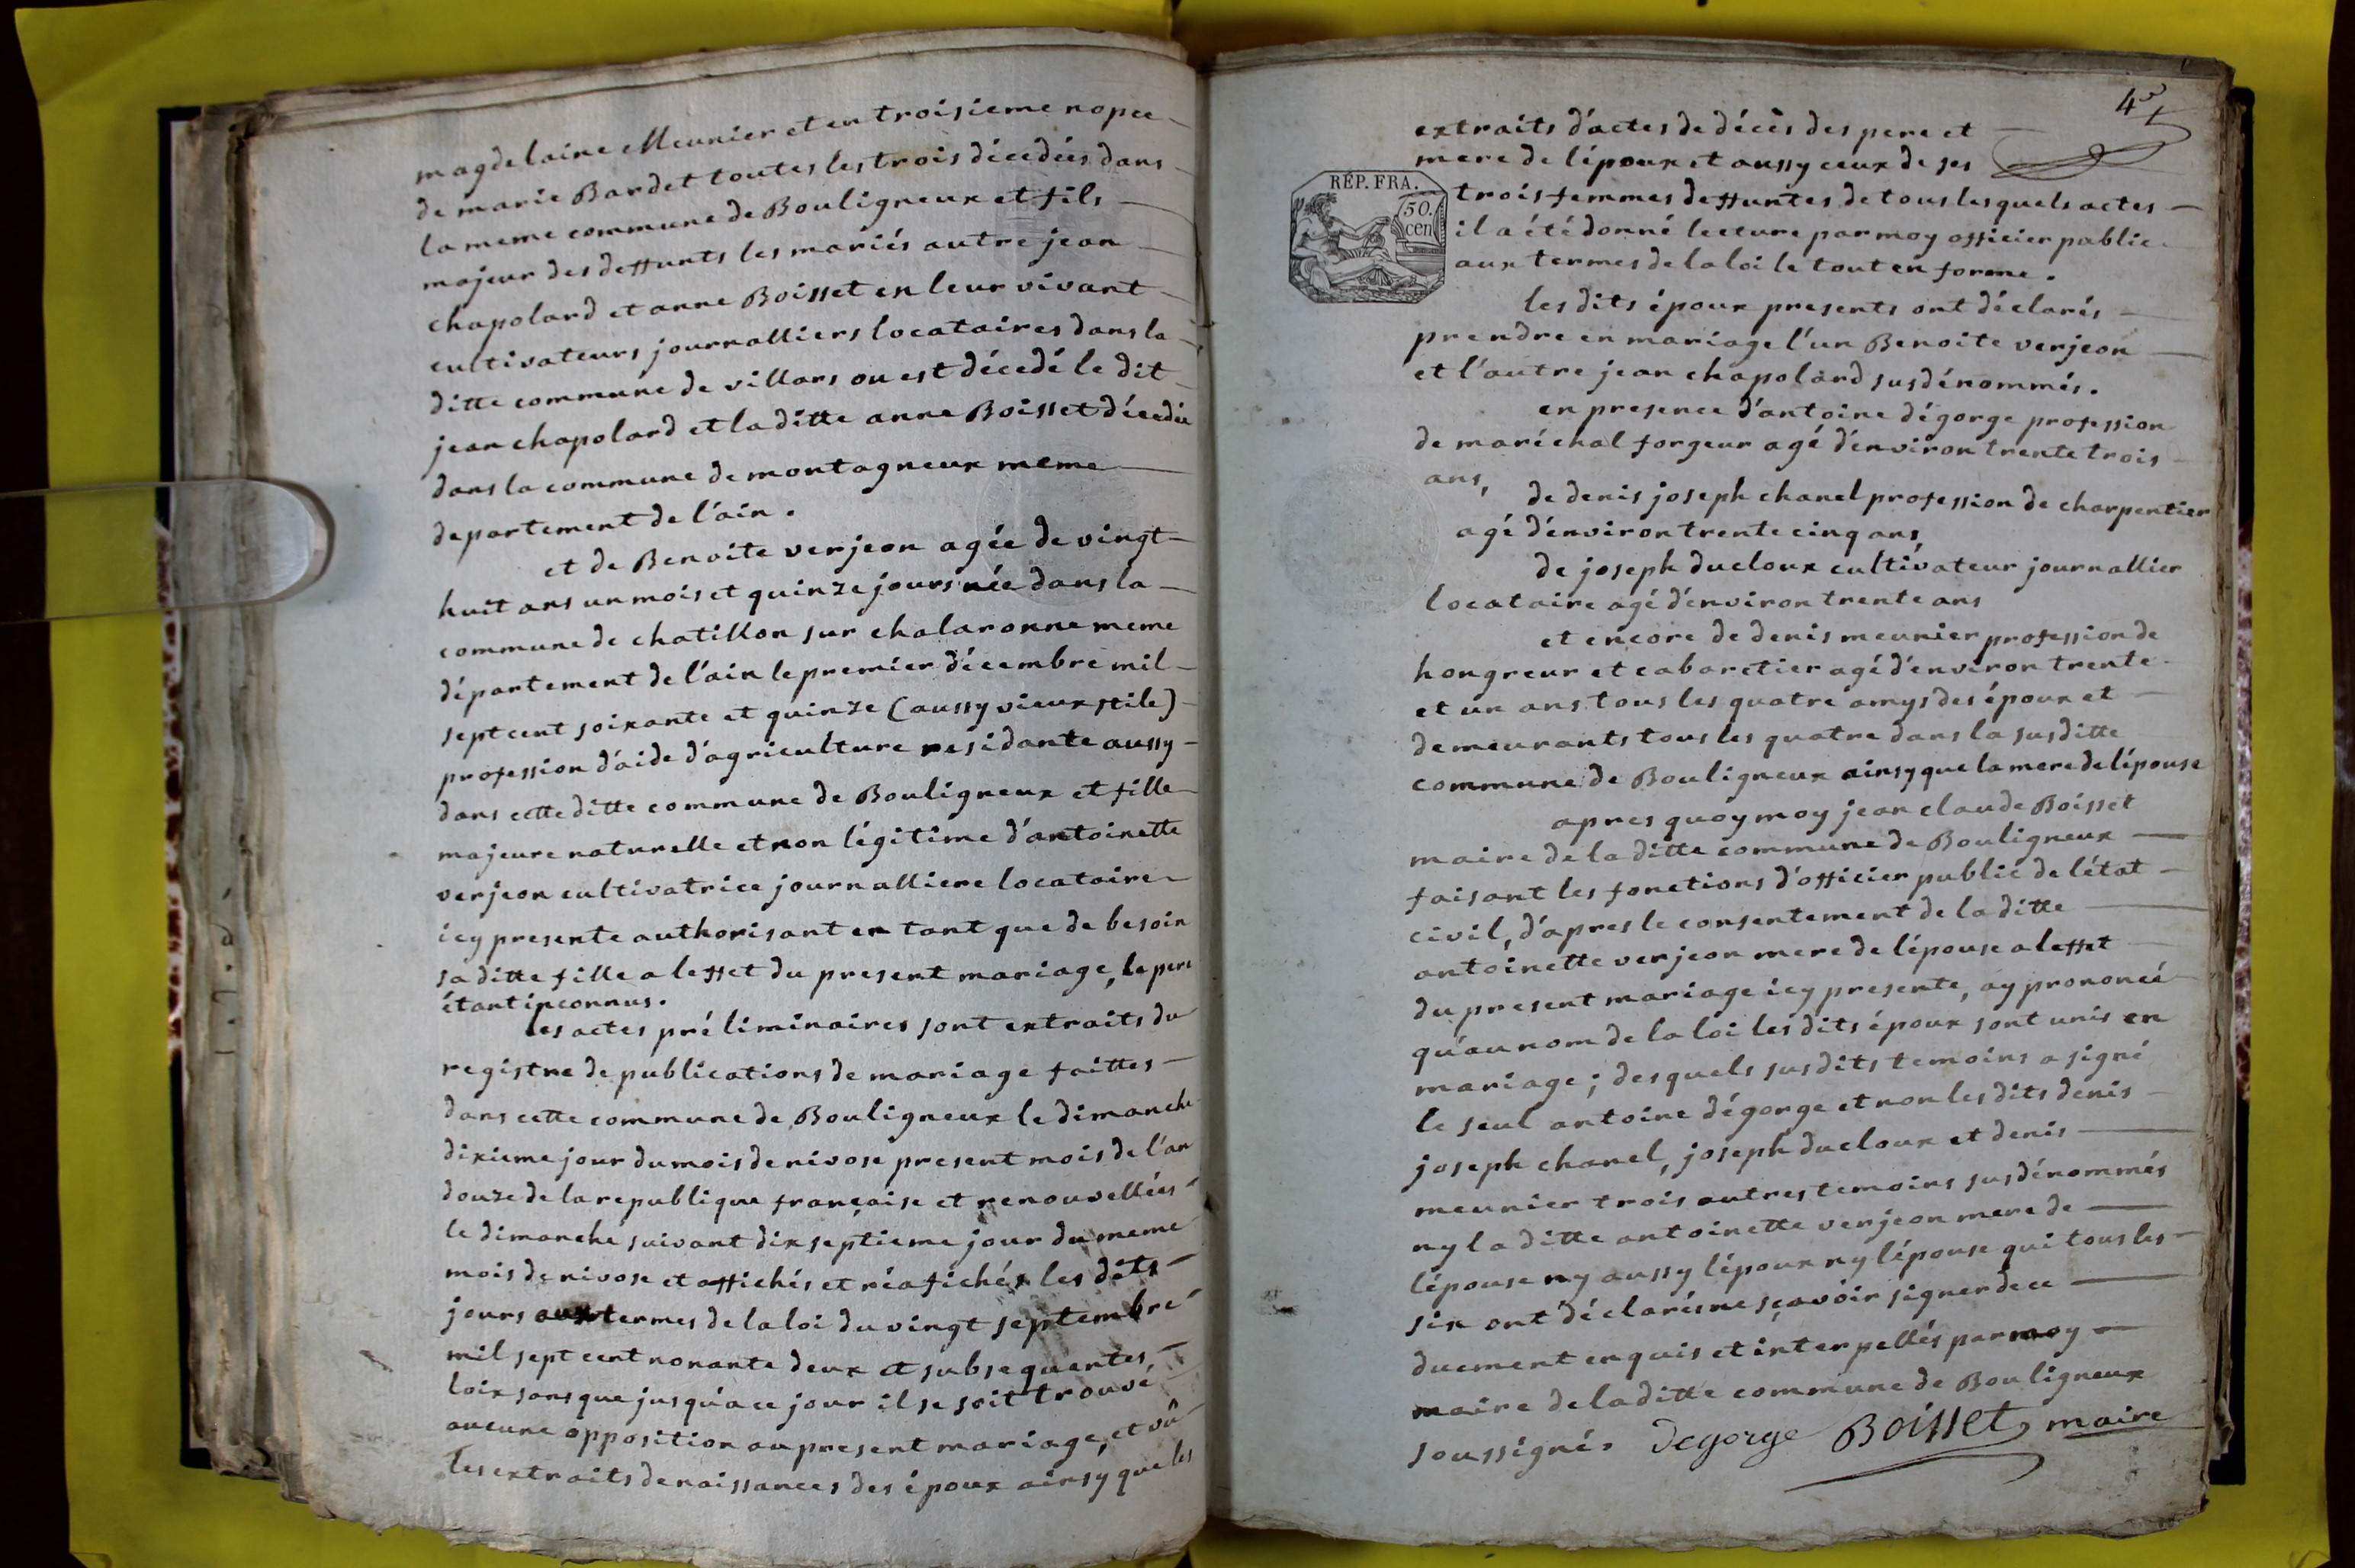 magdelaine Meunier et en troisieme nopce
de marie Bardet toutes les trois décedées dans
la meme commune de Bouligneux et fils
majeur des deffunts les mariés autre jean
chapolard et anne Boisset en leur vivant
cultivateurs journalliers locataires dans la
ditte commune de villars ou est décedé le dit
jean chapolard et la ditte anne Boisset décedée
dans la commune de montagneux meme
departement de l'ain.
et de Benoite verjeon agée de vingt
huit ans un mois et quinze jours née dans la
commune de chatillon sur chalaronne meme
département de l'ain le premier décembre mil
sept cent soixante et quinze (aussy vieux stile)
profession d'aide d'agriculture residante aussy
dans cette ditte commune de Bouligneux et fille
majeure naturelle et non légitime d'antoinette
verjeon cultivatrice journalliere locataire
icy presente authorisant en tant que de besoin
sa ditte fille a leffet du present mariage, le pere
étant inconnus.
les actes préliminaires sont extraits du
registre de publications de mariage faittes
dans cette commune de Bouligneux le dimanche
dixieme jour du mois de nivose present mois de l'an
douze de la republique française et renouvellées
le dimanche suivant dix septieme jour du meme
mois de nivose et affichés et réafichés les dits
jours aux termes de la loi du vingt septembre
mil sept cent nonante deux et subsequentes
loix sans que jusqu'a ce jour il se soit trouvé
aucune opposition au present mariage, et vû
les extraits de naissances des époux ainsy que les
43
extraits d'actes de décès des pere et
mere de l'époux et aussy ceux de ses
RÉP. FRA.
50.
cen
trois femmes deffuntes de tous lesquels actes
il a été donné lecture par moy officier public
aux termes de la loi le tout en forme.
les dits époux presents ont déclarés
prendre en mariage l'un Benoite verjeon
et l'autre jean chapolard susdénommés.
en presence d'antoine dégorge profession
de maréchal forgeur agé d'environ trente trois
ans,
de denis joseph chanel profession de charpentier
agé d'environ trente cinq ans,
de joseph ducloux cultivateur journallier
locataire agé d'environ trente ans
et encore de denis meunier profession de
hongreur et cabaretier agé d'environ trente
et un ans tous les quatre amys des époux et
demeurants tous les quatre dans la susditte
commune de Bouligneux ainsy que la mere de l'épouse
apres quoy moy jean claude Boisset
maire de la ditte commune de Bouligneux
faisant les fonctions d'officier public de l'état
civil, d'apres le consentement de la ditte
antoinette verjeon mere de lépouse a leffet
du present mariage icy presente, ay prononcé
qu'au nom de la loi les dits époux sont unis en
mariage; desquels susdits temoins a signé
le seul antoine dégorge et non les dits denis
joseph chanel, joseph ducloux et denis
meunier trois autres temoins susdénommés
ny la ditte antoinette verjeon mere de
lépouse ny aussy lépoux ny lépouse qui tous les
six ont déclarés ne sçavoir signer de ce
duement enquis et interpellés par moy
maire de la ditte commune de Bouligneux
soussignés Degorge Boisset maire